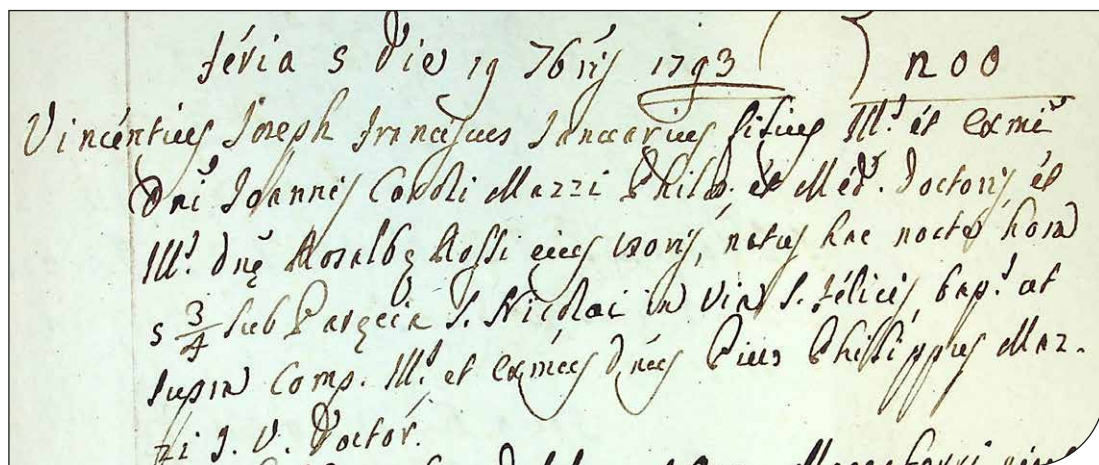 feria 5 Die 19 7bris 1793 n 00
Vincentius Joseph Franciscus Januarius filius Ill.' et Exmi
Dni Joannis Caroli Mazzi Philæ. et Med. Doctoris, et
Ill.' Dnę Rosalbę Rossi eius uxoris, natus hac nocte hora
5 3/4 sub Paręcia S. Nicolai in via S. Felicis, bap.' ut
supra Comp. Ill.' et Exmus Dnus Pius Philippus Maz-
zi J. V. Doctor.